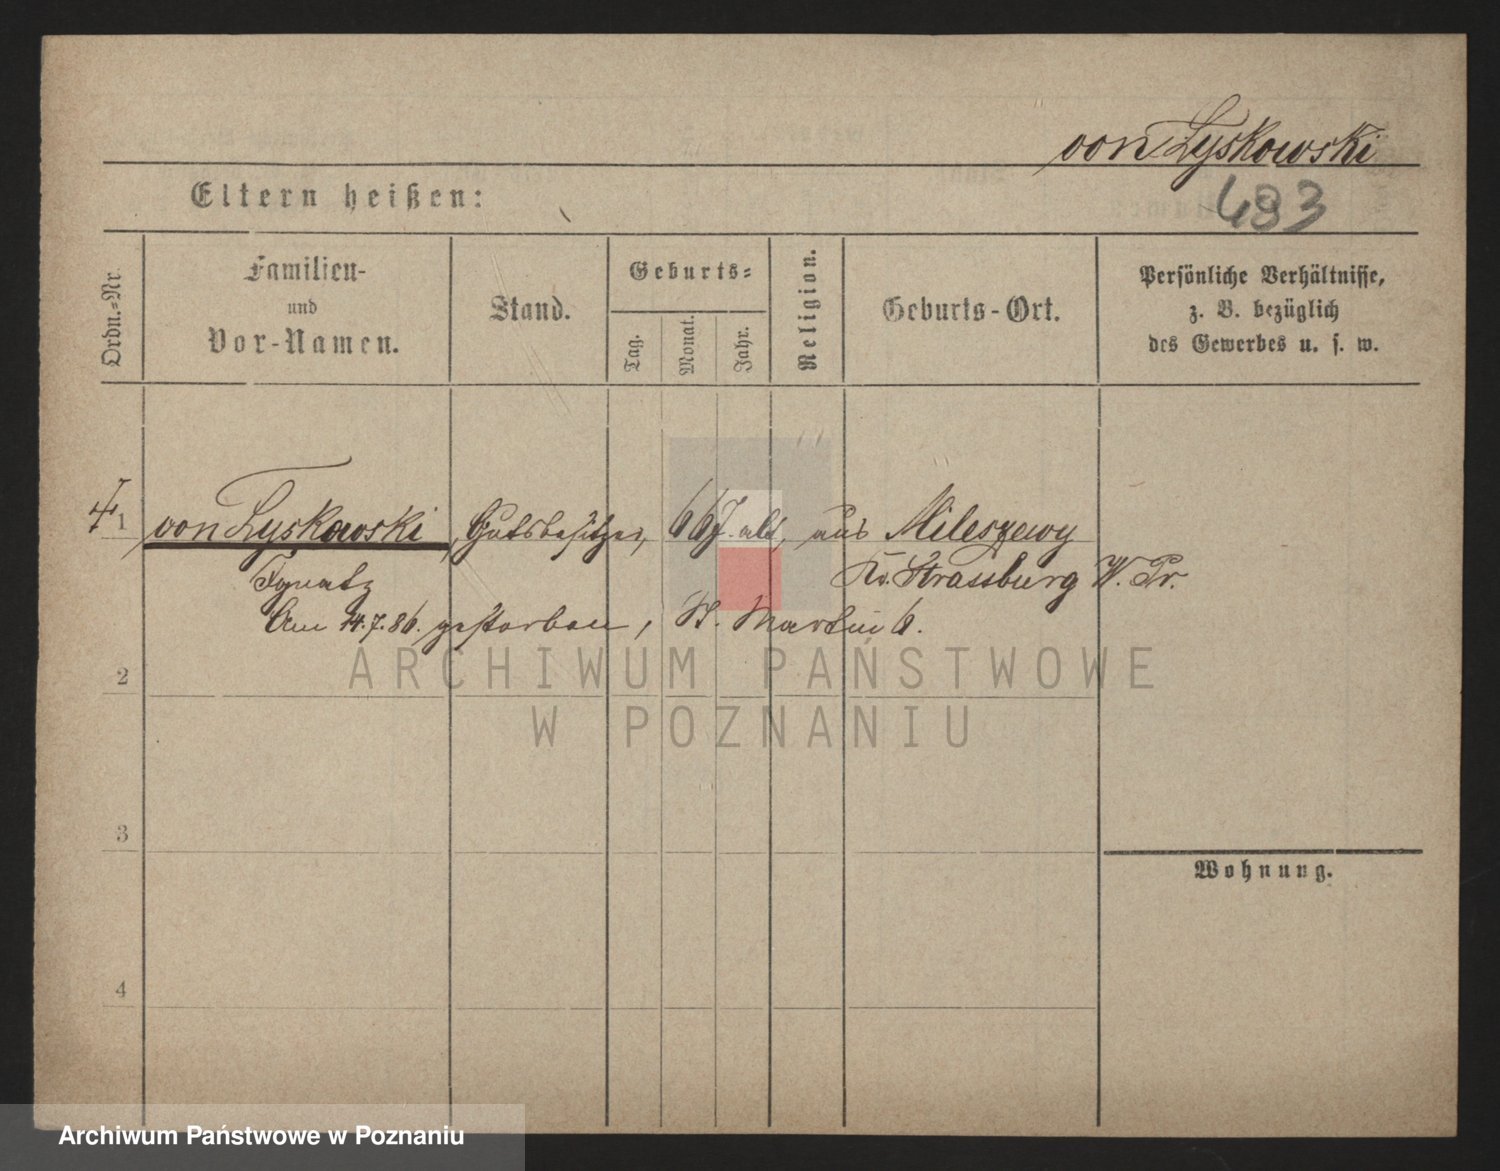 von Lyskowski
493
Eltern heißen:
Ordn.-Nr.
Familien-
und
Vor-Namen.
Stand.
Geburts-
Tag.
Monat.
Jahr.
Religion.
Geburts-Ort.
Persönliche Verhältnisse,
z. B. bezüglich
des Gewerbes u. s. w.
1 von Lyskowski, Gutsbesitzer, 66 J. alt, aus Mileszewy
Ignatz Kr. Strassburg W. Pr.
Am 14.7.86. gestorben, St. Martin 6.
ARCHIWUM PAŃSTWOWE
W POZNANIU
2
3
Wohnung.
4
Archiwum Państwowe w Poznaniu